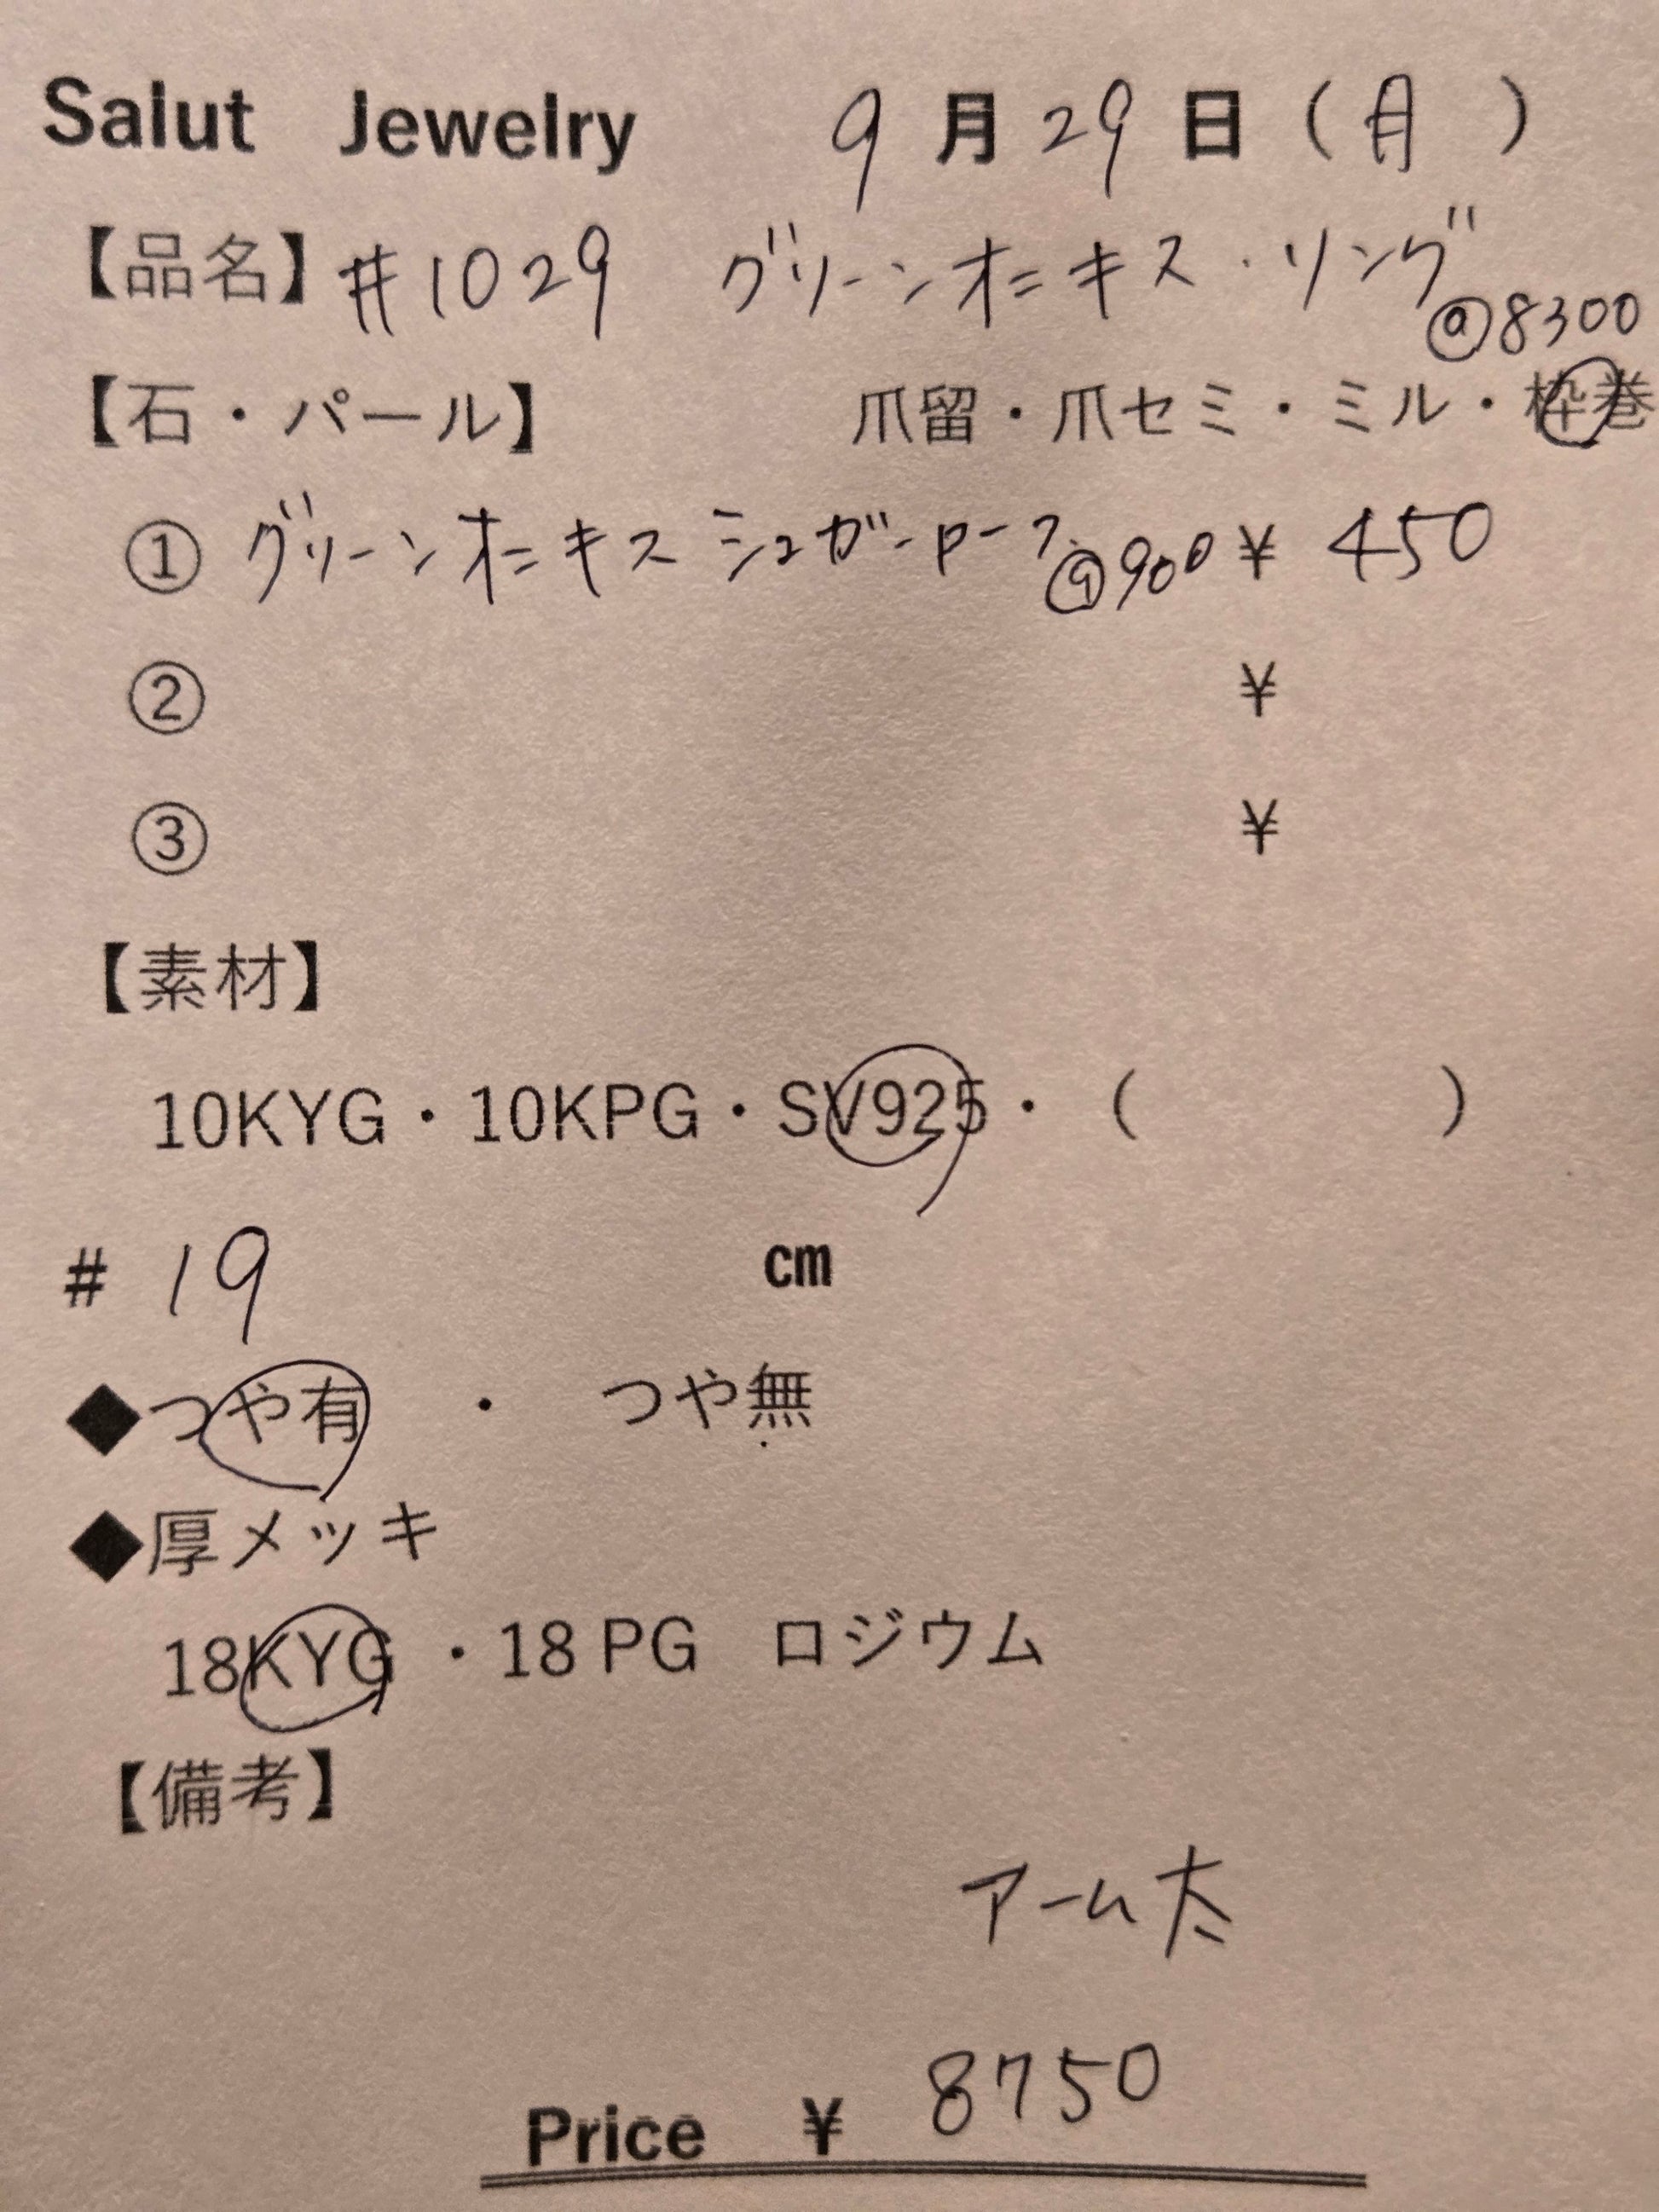 Salut Jewelry 9月29日（月）
【品名】#1029 グリーンオニキス・リング
@8300
【石・パール】 爪留・爪セミ・ミル・枠巻
① グリーンオニキスシュガーローフ @900 ¥ 450
② ¥
③ ¥
【素材】
10KYG・10KPG・SV925・（ ）
# 19 cm
◆つや有 ・ つや無
◆厚メッキ
18KYG ・18 PG ロジウム
【備考】
アーム太
Price ¥ 8750